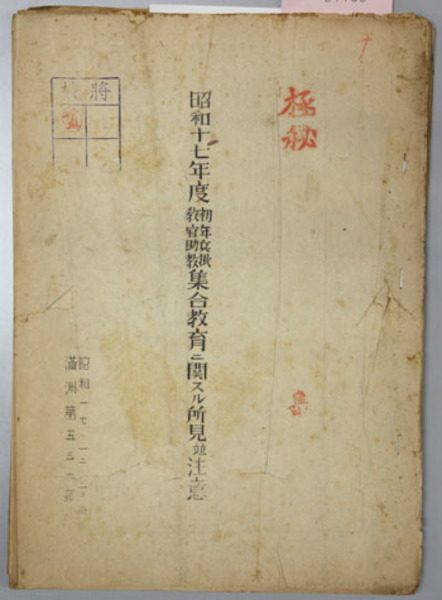 極秘
昭和十七年度初年兵掛教官助教集合教育ニ関スル所見並注意
将校
昭和一七、一二
満洲第五三部